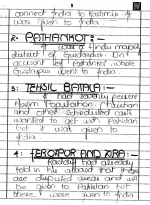 connect India to Kashmir it
was given to India.
2- PATHANKOT:-
It was a Hindu majority
district of Gurdaspur. On
account of Pathankot whole
Gurdaspur went to India.
3: TEHSIL BATALA:-
It had seventy percent
Muslim Population. Christian
and other scheduled casts
wanted to get with Pakistan
but it was given to
India.
4: FEROZPUR AND ZIRA:-
Radcliff had already
told in his that these
are disputed areas and will
be given to Pakistan but
these went to India